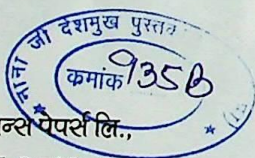 नाना जी देशमुख पुस्तक
क्रमांक 935B
न्स पेपर्स लि.,